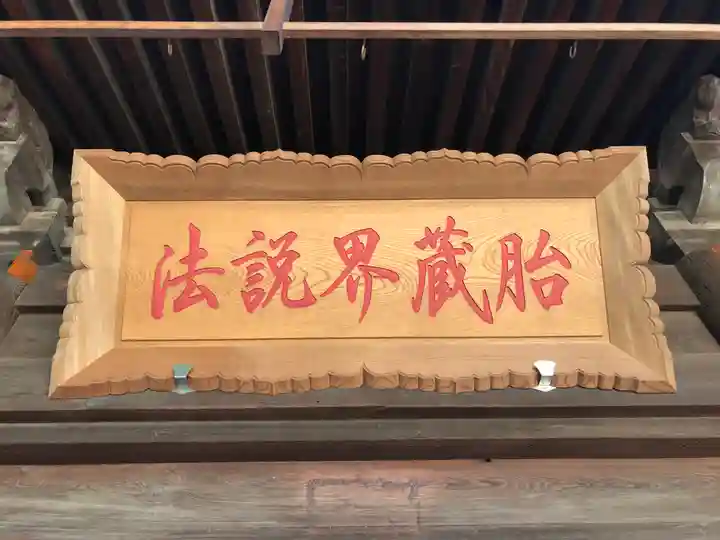 胎蔵界説法